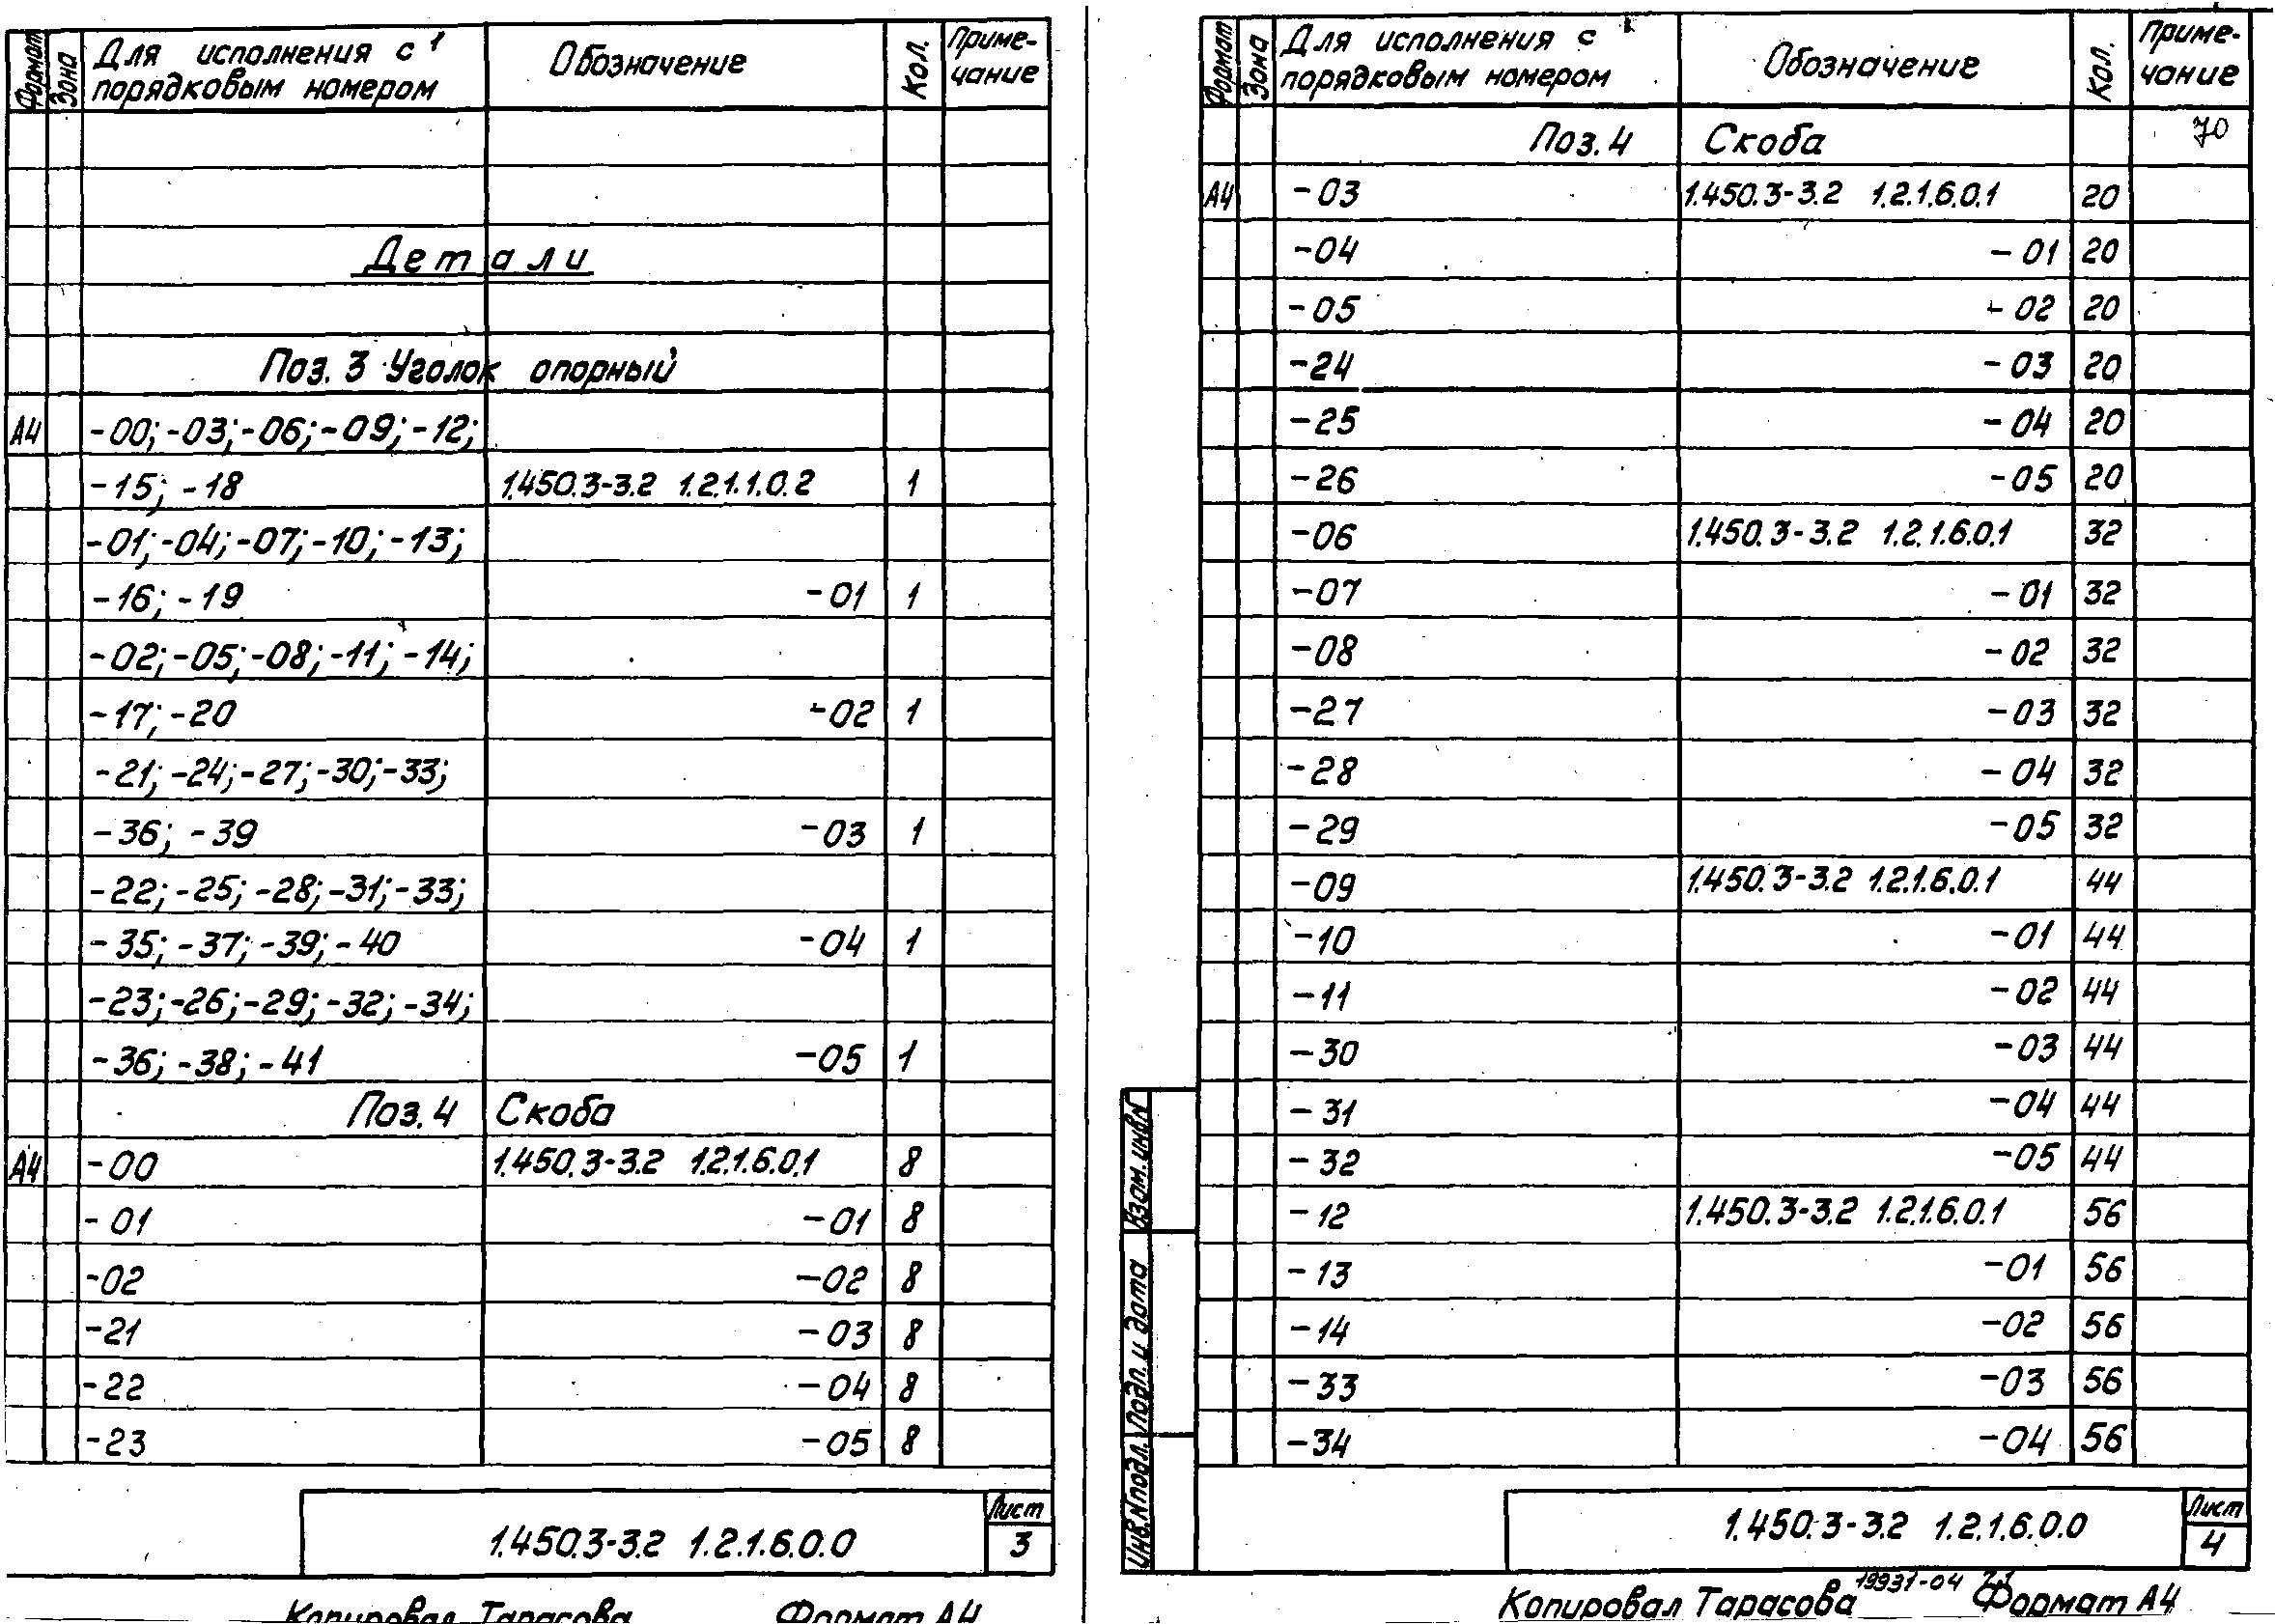 Формат
Зона
Для исполнения с
порядковым номером
Обозначение
Кол.
Приме-
чание
Детали
Поз. 3 Уголок опорный
А4 -00; -03; -06; -09; -12;
-15; -18 1.450.3-3.2 1.2.1.1.0.2 1
-01; -04; -07; -10; -13;
-16; -19 -01 1
-02; -05; -08; -11; -14;
-17; -20 -02 1
-21; -24; -27; -30; -33;
-36; -39 -03 1
-22; -25; -28; -31; -33;
-35; -37; -39; -40 -04 1
-23; -26; -29; -32; -34;
-36; -38; -41 -05 1
Поз. 4 Скоба
А4 -00 1.450.3-3.2 1.2.1.6.0.1 8
-01 -01 8
-02 -02 8
-21 -03 8
-22 -04 8
-23 -05 8
1.450.3-3.2 1.2.1.6.0.0
Лист
3
Копировал Тарасова Формат А4
Формат
Зона
Для исполнения с
порядковым номером
Обозначение
Кол.
Приме-
чание
Поз. 4 Скоба 70
А4 -03 1.450.3-3.2 1.2.1.6.0.1 20
-04 -01 20
-05 -02 20
-24 -03 20
-25 -04 20
-26 -05 20
-06 1.450.3-3.2 1.2.1.6.0.1 32
-07 -01 32
-08 -02 32
-27 -03 32
-28 -04 32
-29 -05 32
-09 1.450.3-3.2 1.2.1.6.0.1 44
-10 -01 44
-11 -02 44
-30 -03 44
-31 -04 44
-32 -05 44
-12 1.450.3-3.2 1.2.1.6.0.1 56
-13 -01 56
-14 -02 56
-33 -03 56
-34 -04 56
Взам. инв №
Подп. и дата
Инв. № подл.
1.450.3-3.2 1.2.1.6.0.0
Лист
4
19931-04 71
Копировал Тарасова Формат А4